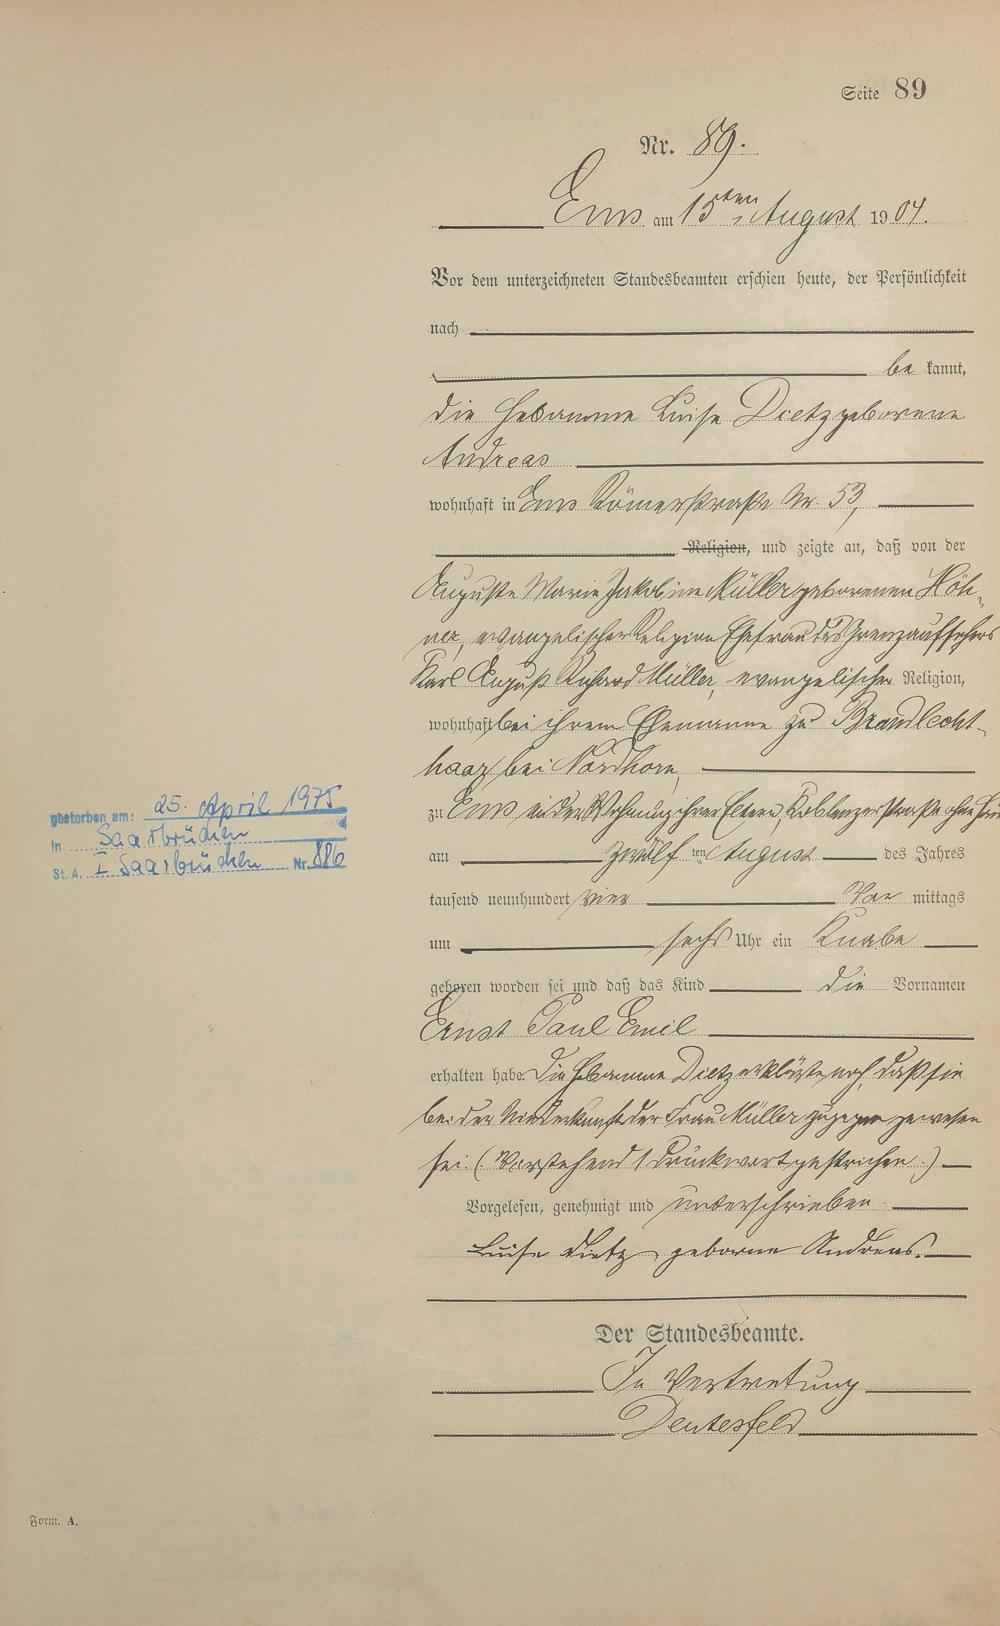 Seite 89
Nr. 89.
Ems am 15ten August 1904.
Vor dem unterzeichneten Standesbeamten erschien heute, der Persönlichkeit
nach
be kannt,
die Hebamme Luise Dietz geborene
Andreas
wohnhaft in Ems Römerstraße Nr. 53,
Religion, und zeigte an, daß von der
Auguste Marie Jakobine Müller geborenen Höh-
ner, evangelischer Religion Ehefrau des Grenzaufsehers
Karl August Richard Müller, evangelischer Religion,
wohnhaft bei ihrem Ehemanne zu Brandlecht-
haar bei Nordhorn,
zu Ems in der Wohnung ihrer Eltern, Koblenzerstraße ohne
am zwölf ten August des Jahres
tausend neunhundert vier Vor mittags
um sechs Uhr ein Knabe
geboren worden sei und daß das Kind die Vornamen
Ernst Paul Emil
erhalten habe. Die Hebamme Dietz erklärte noch, daß sie
bei der Niederkunft der Frau Müller zugegen gewesen
sei. (Vorstehend 1 Druckwort gestrichen.)
Vorgelesen, genehmigt und unterschrieben
Luise Dietz geborne Andreas.
Der Standesbeamte.
In Vertretung
gestorben am: 25. April 1975
in Saarbrücken
St. A. I Saarbrücken Nr. 886
Form. A.